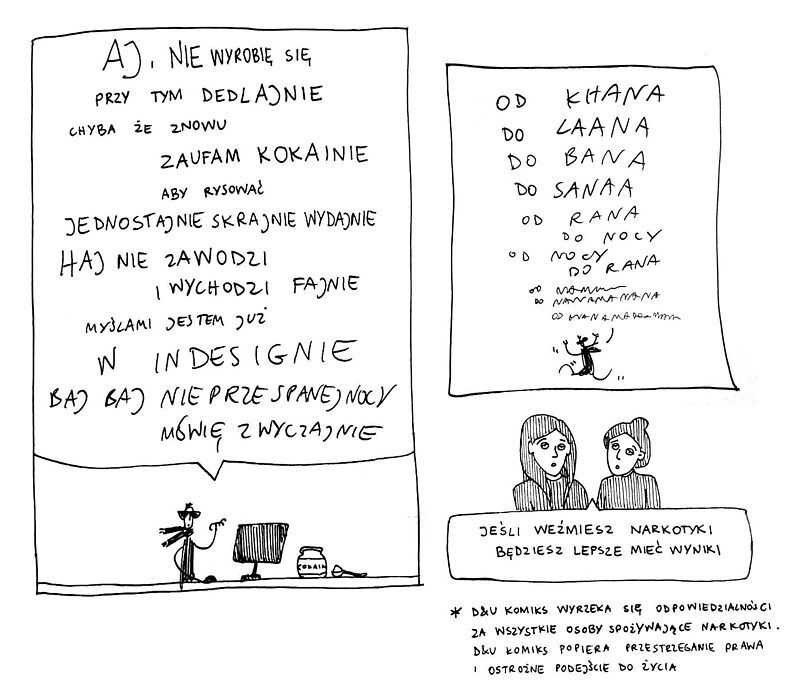 AJ, NIE WYROBIĘ SIĘ
PRZY TYM DEDLAJNIE
CHYBA ŻE ZNOWU
ZAUFAM KOKAINIE
ABY RYSOWAĆ
JEDNOSTAJNIE SKRAJNIE WYDAJNIE
HAJ NIE ZAWODZI
I WYCHODZI FAJNIE
MYŚLAMI JESTEM JUŻ
W INDESIGNIE
BAJ BAJ NIEPRZESPANEJ NOCY
MÓWIĘ ZWYCZAJNIE
COKAIN
OD KHANA
DO LAANA
DO BANA
DO SANAA
OD RANA
DO NOCY
OD NOCY
DO RANA
OD
DO NANAMANANA
OD
JEŚLI WEŹMIESZ NARKOTYKI
BĘDZIESZ LEPSZE MIEĆ WYNIKI
* D&U KOMIKS WYRZEKA SIĘ ODPOWIEDZIALNOŚCI
ZA WSZYSTKIE OSOBY SPOŻYWAJĄCE NARKOTYKI.
D&U KOMIKS POPIERA PRZESTRZEGANIE PRAWA
I OSTROŻNE PODEJŚCIE DO ŻYCIA